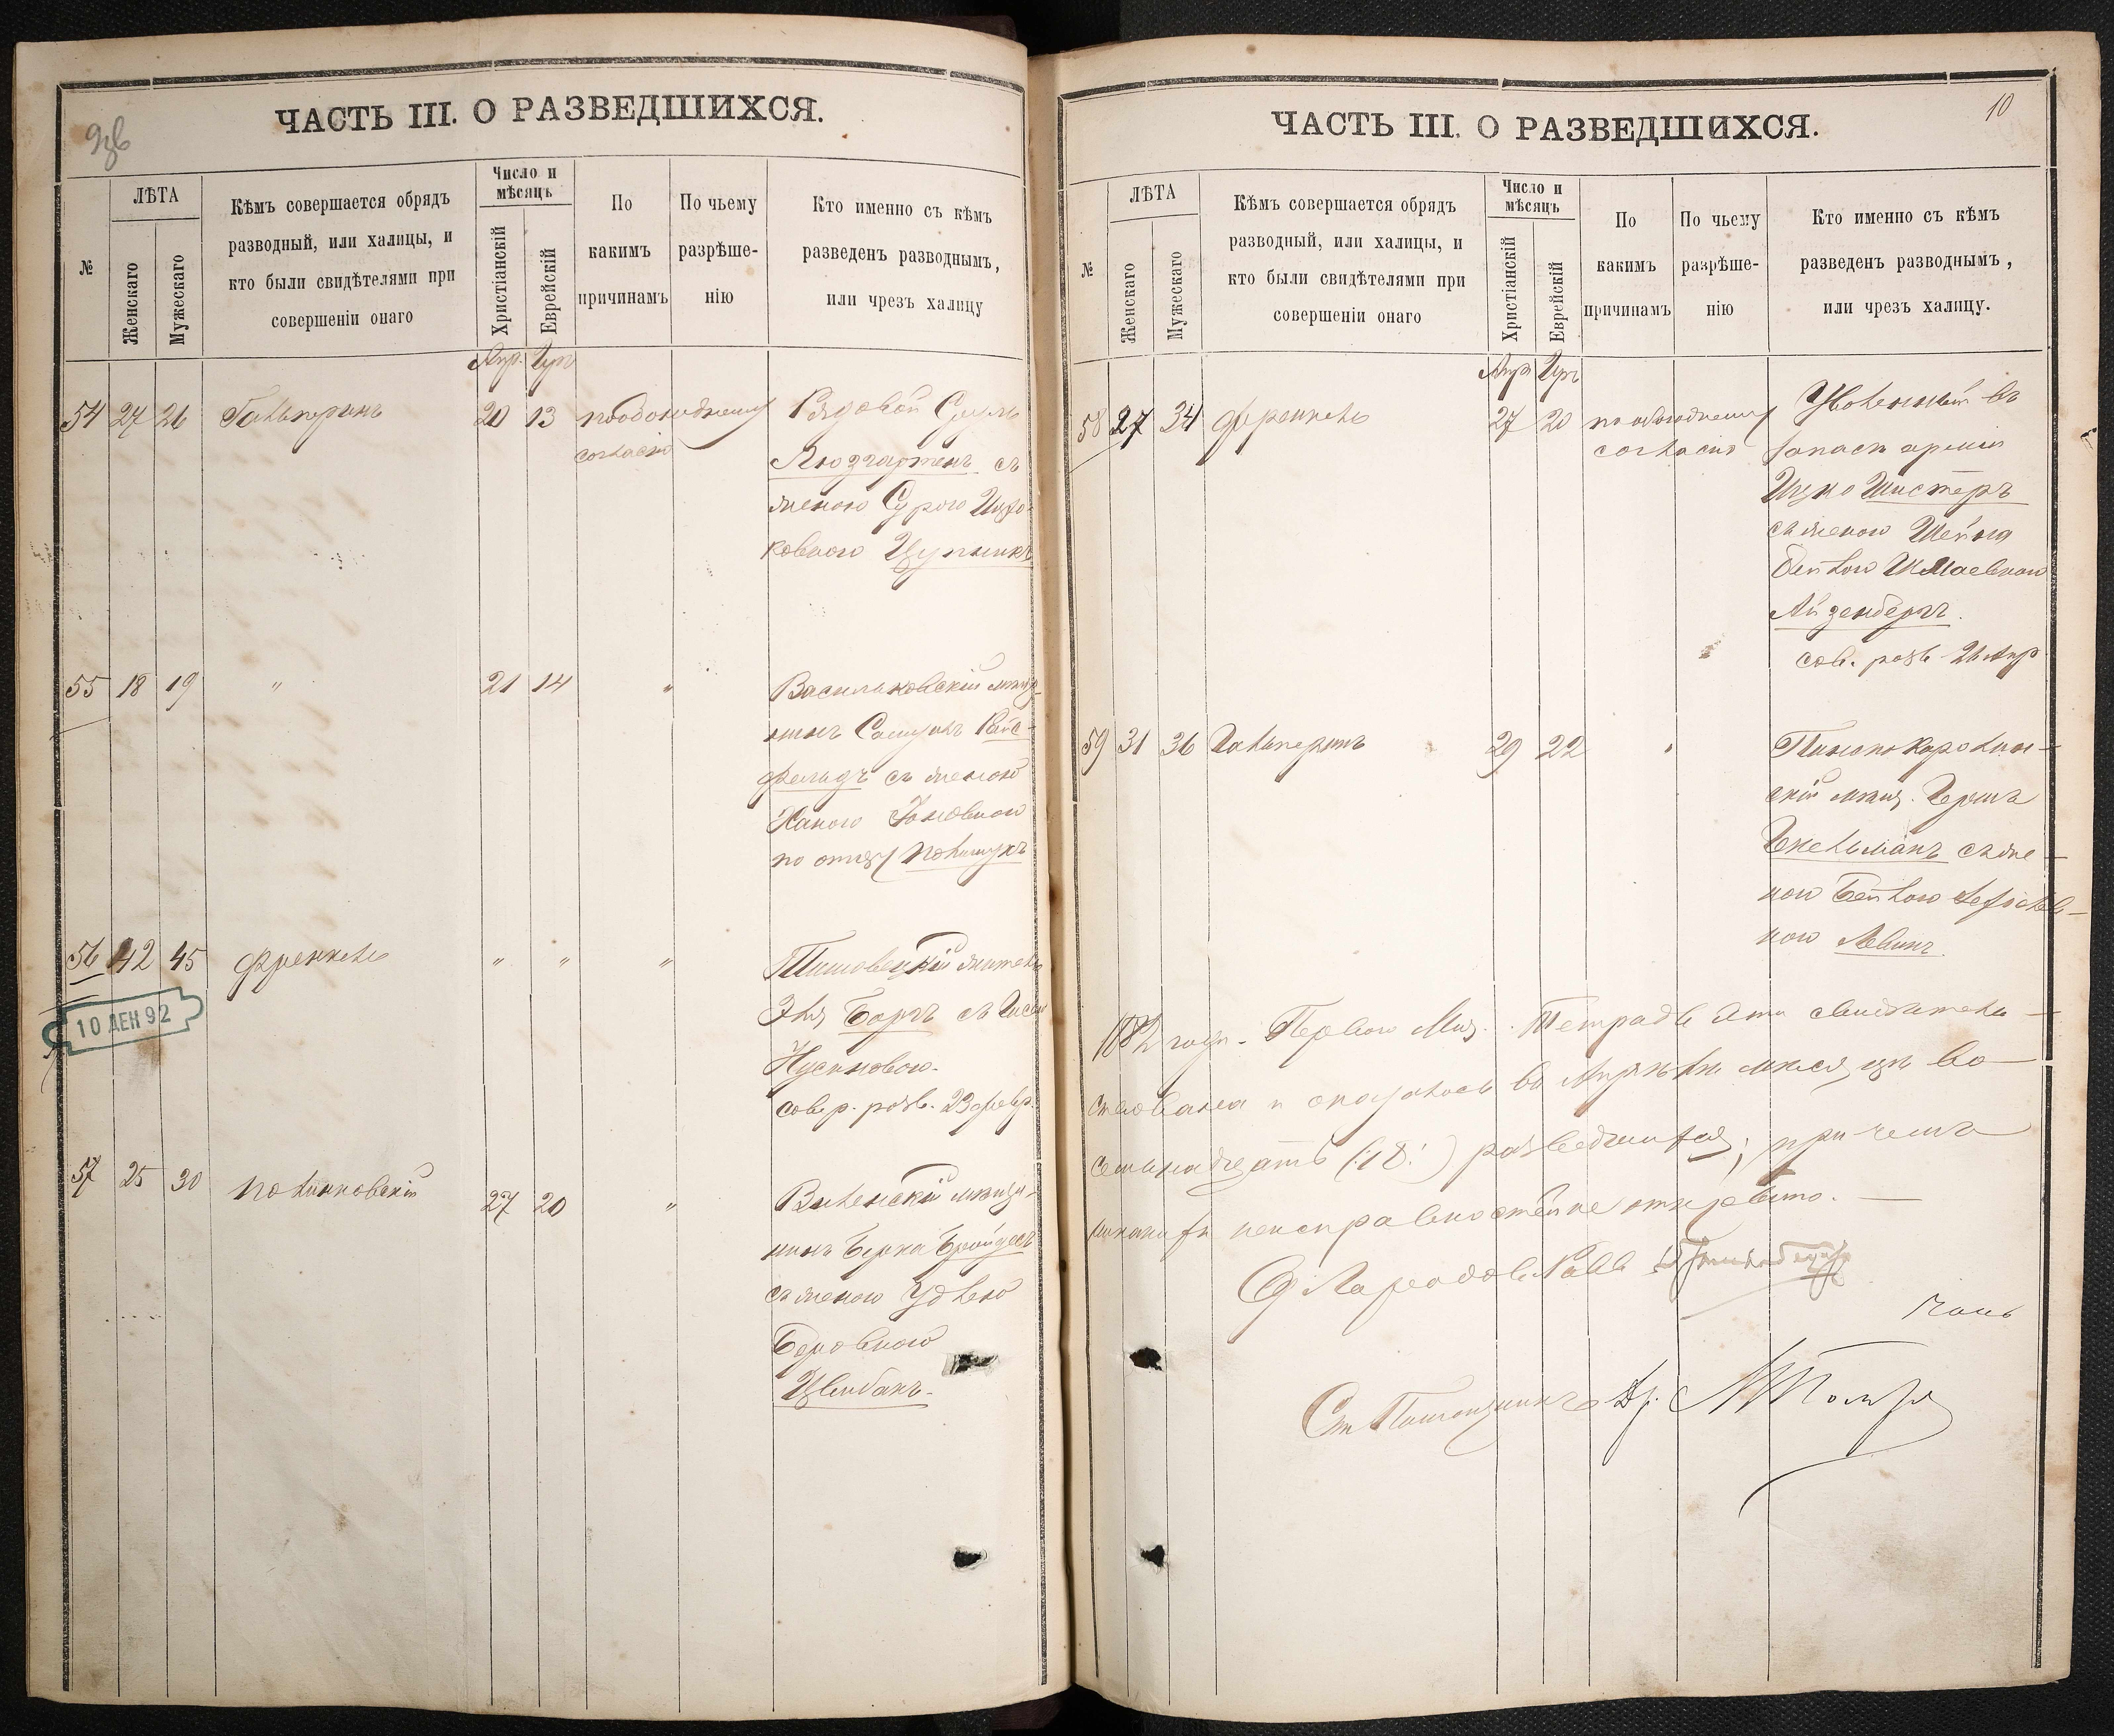 ЧАСТЬ III. О РАЗВЕДШИХСЯ.
№
ЛѢТА
Женскаго
Мужескаго
Кѣмъ совершается обрядъ
разводный, или халицы, и
кто были свидѣтелями при
совершеніи онаго
Число и
мѣсяцъ
Христіанскій
Еврейскій
По
какимъ
причинамъ
По чьему
разрѣше-
нію
Кто именно съ кѣмъ
разведенъ разводнымъ,
или чрезъ халицу
Апр. Iуръ
54 27 26 Гальперинъ 20 13 по обоюдному
согласію
Рядовой Сруль
Люзгартенъ съ
женою Сурою Ицко-
ковною Цупникъ
55 18 19 " 21 14 "
Васильковскій мѣща-
нинъ Самуилъ Райс-
фельдъ съ женою
Ханою
по отцу Полищукъ
56 42 45 Френкель " " "
житель
Эля Боргъ съ
Нусиновою.
совер. разв. 23 февр.
10 ДЕН 92
57 25 30 Полинковскій 27 20 "
Виленскій мѣща-
нинъ Берка
съ женою Удлею
Беровною
Цвибакъ.
ЧАСТЬ III. О РАЗВЕДШИХСЯ.
10
№
ЛѢТА
Женскаго
Мужескаго
Кѣмъ совершается обрядъ
разводный, или халицы, и
кто были свидѣтелями при
совершеніи онаго
Число и
мѣсяцъ
Христіанскій
Еврейскій
По
какимъ
причинамъ
По чьему
разрѣше-
нію
Кто именно съ кѣмъ
разведенъ разводнымъ,
или чрезъ халицу.
Апр Iуръ
58 27 34 Френкель 27 20 по обоюдному
согласію
Уволенный въ
запасъ арміи
Ицко Шистеръ
съ женою Шейна
Бейлою Шмаевною
Айзенбергъ.
сов. разв. 26 Апр
59 31 36 Гальперинъ 29 22 "
скій мѣщ. Гершъ
съ же-
ною Бейлою
ною Левинъ.
1882 года. Перваго Мая. Тетрадь эта свидѣтель-
ствована и оказалось въ Апрѣлѣ мѣсяцѣ во-
семьнадцать (:18:) разведшихся, при чемъ
никакихъ неисправностей не открыто.